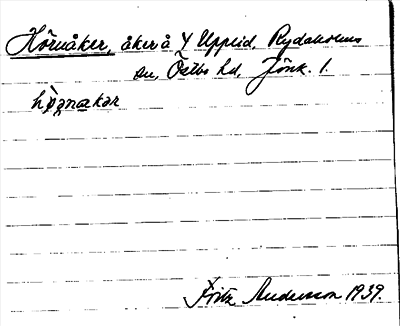 Hörnåker, åker å Y Upplid, Rydaholms
sn, Östbo hd, Jönk. l.
hö̀ṛnakər
Fritz Andersson 1939.